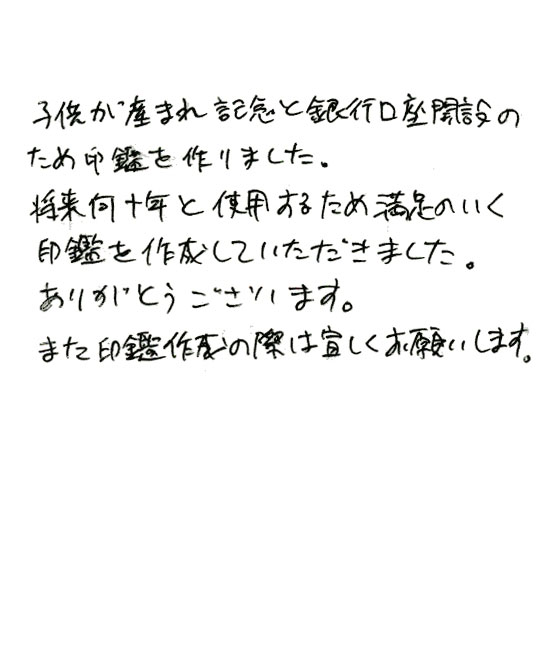 子供が産まれ記念と銀行口座開設の
ため印鑑を作りました。
将来何十年と使用するため満足のいく
印鑑を作成していただきました。
ありがとうございます。
また印鑑作成の際は宜しくお願いします。